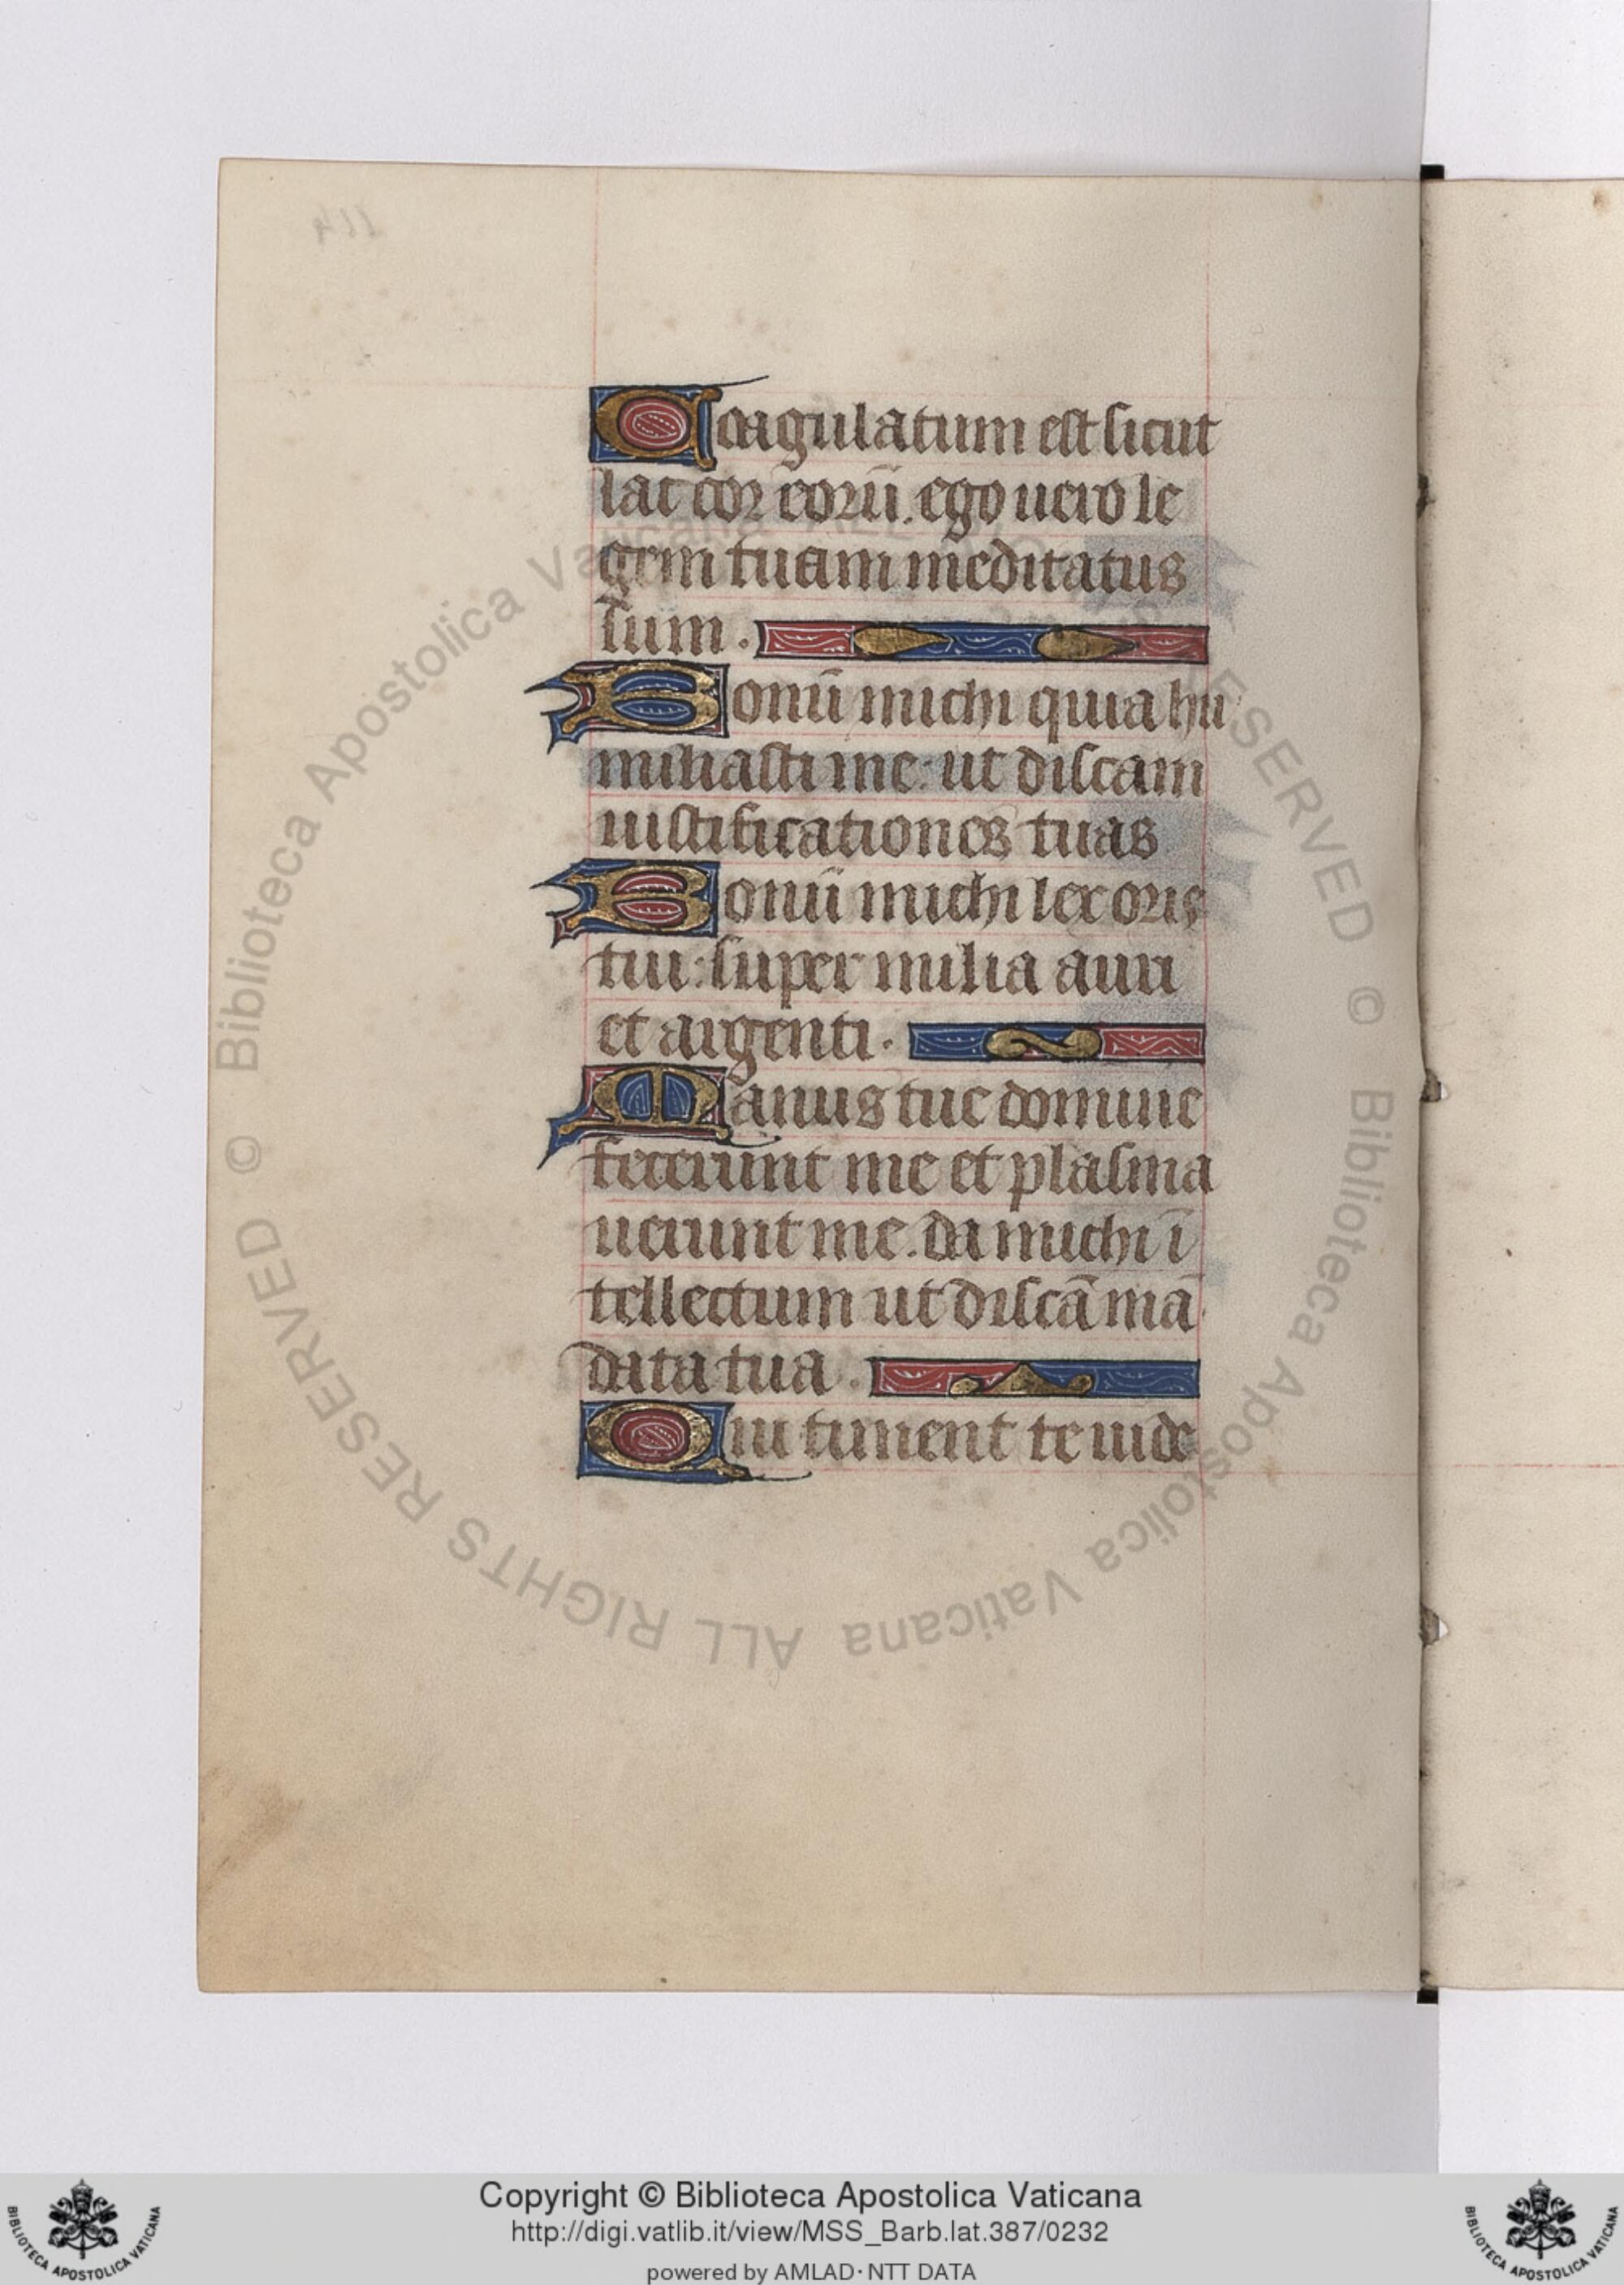 Coagulatum est sicut
lac cor eorū. ego uero le
gem tuam meditatus
sum.
Bonū michi quia hu
miliasti me: ut discam
iustificationes tuas
Bonū michi lex oris
tui: super milia auri
et argenti.
Manus tue domine
fecerunt me et plasma
uerunt me. da michi ī
tellectum ut discā mā
data tua.
Qui timent te uide
© Biblioteca Apostolica Vaticana ALL RIGHTS RESERVED © Biblioteca Apostolica Vaticana ALL RIGHTS RESERVED
Copyright © Biblioteca Apostolica Vaticana
http://digi.vatlib.it/view/MSS_Barb.lat.387/0232
powered by AMLAD·NTT DATA
BIBLIOTECA APOSTOLICA VATICANA
BIBLIOTECA APOSTOLICA VATICANA